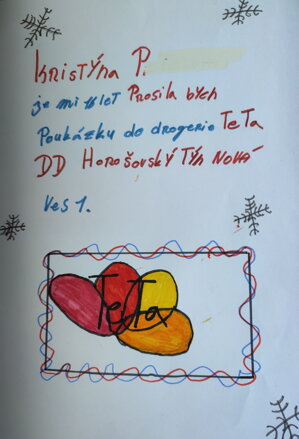 Kristýna P.
je mi 16 let Prosila bych
Poukázku do drogerie TeTa
DD Horošovský Týn Nová
Ves 1.
TeTa